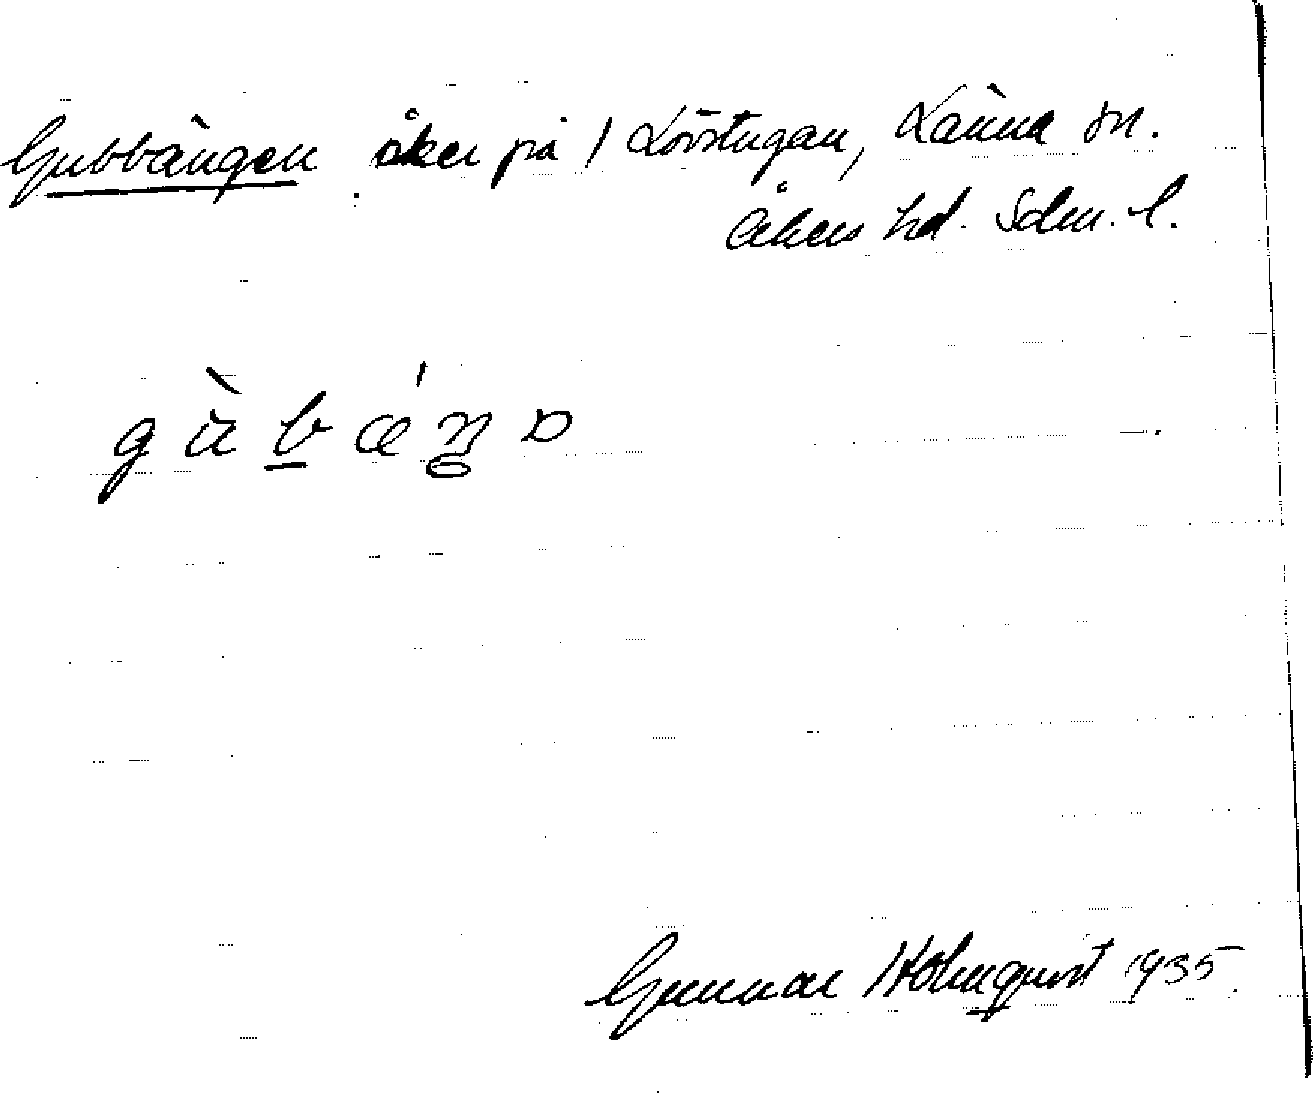 Gubbängen åker på / Lövstugan, Länna sn.
Åkers hd. Sdm. l.
Gunnar Holmqvist 1935.